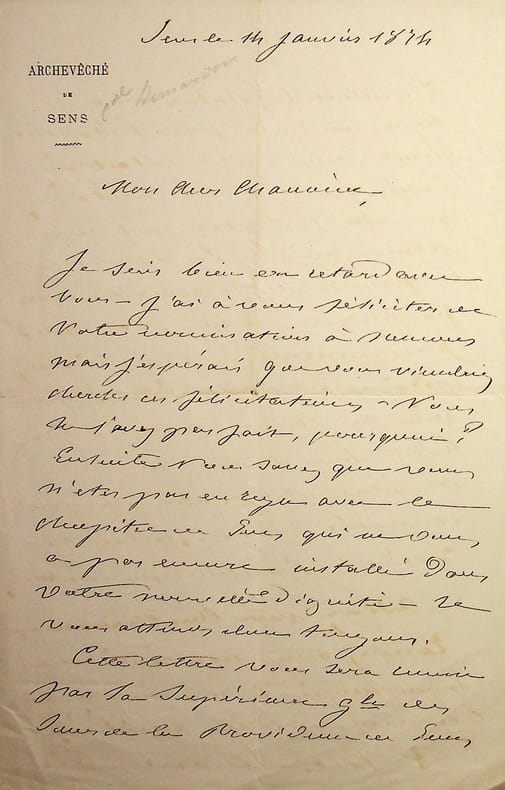 Sens le 14 Janvier 1874
ARCHEVÊCHÉ
DE
SENS
Cal Bernardou
Mon cher Chanoine,
Je suis bien en retard avec
vous — j'ai à vous féliciter de
votre nomination à
mais j'espérais que vous viendriez
chercher ces félicitations — Vous
ne l'avez pas fait, pourquoi ?
Ensuite vous savez que vous
n'êtes pas en règle avec le
chapitre de Sens qui ne vous
a pas encore installé dans
votre nouvelle dignité — Je
vous attends donc toujours.
Cette lettre vous sera remise
par la Supérieure gle des
Sœurs de la Providence de Sens